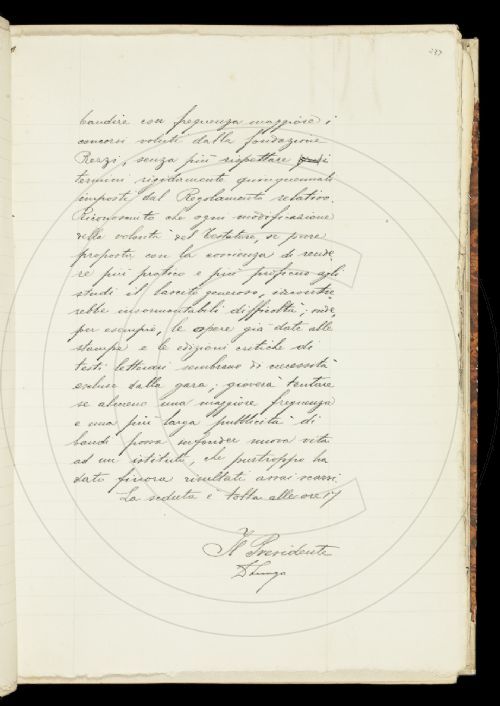 bandire con frequenza maggiore i
concorsi voluti dalla fondazione
Rezzi, senza più rispettare i
termini rigidamente quinquennali
imposti dal Regolamento relativo.
Riconosciuto che ogni modificazione
della volontà del Testatore, se pure
proposta con la coscienza di rende,
re più pratico e più proficuo agli
studi il lascito generoso, incontre,
rebbe insormontabili difficoltà; onde,
per esempio, le opere già date alle
stampe e le edizioni critiche di
testi letterari sembrano di necessità
escluse dalla gara; gioverà tentare
se almeno una maggiore frequenza
e una più larga pubblicità di
bandi possa infonder nuova vita
ad un istituto, che purtroppo ha
dato finora risultati assai scarsi.
La seduta è tolta alle ore 17
Il Presidente